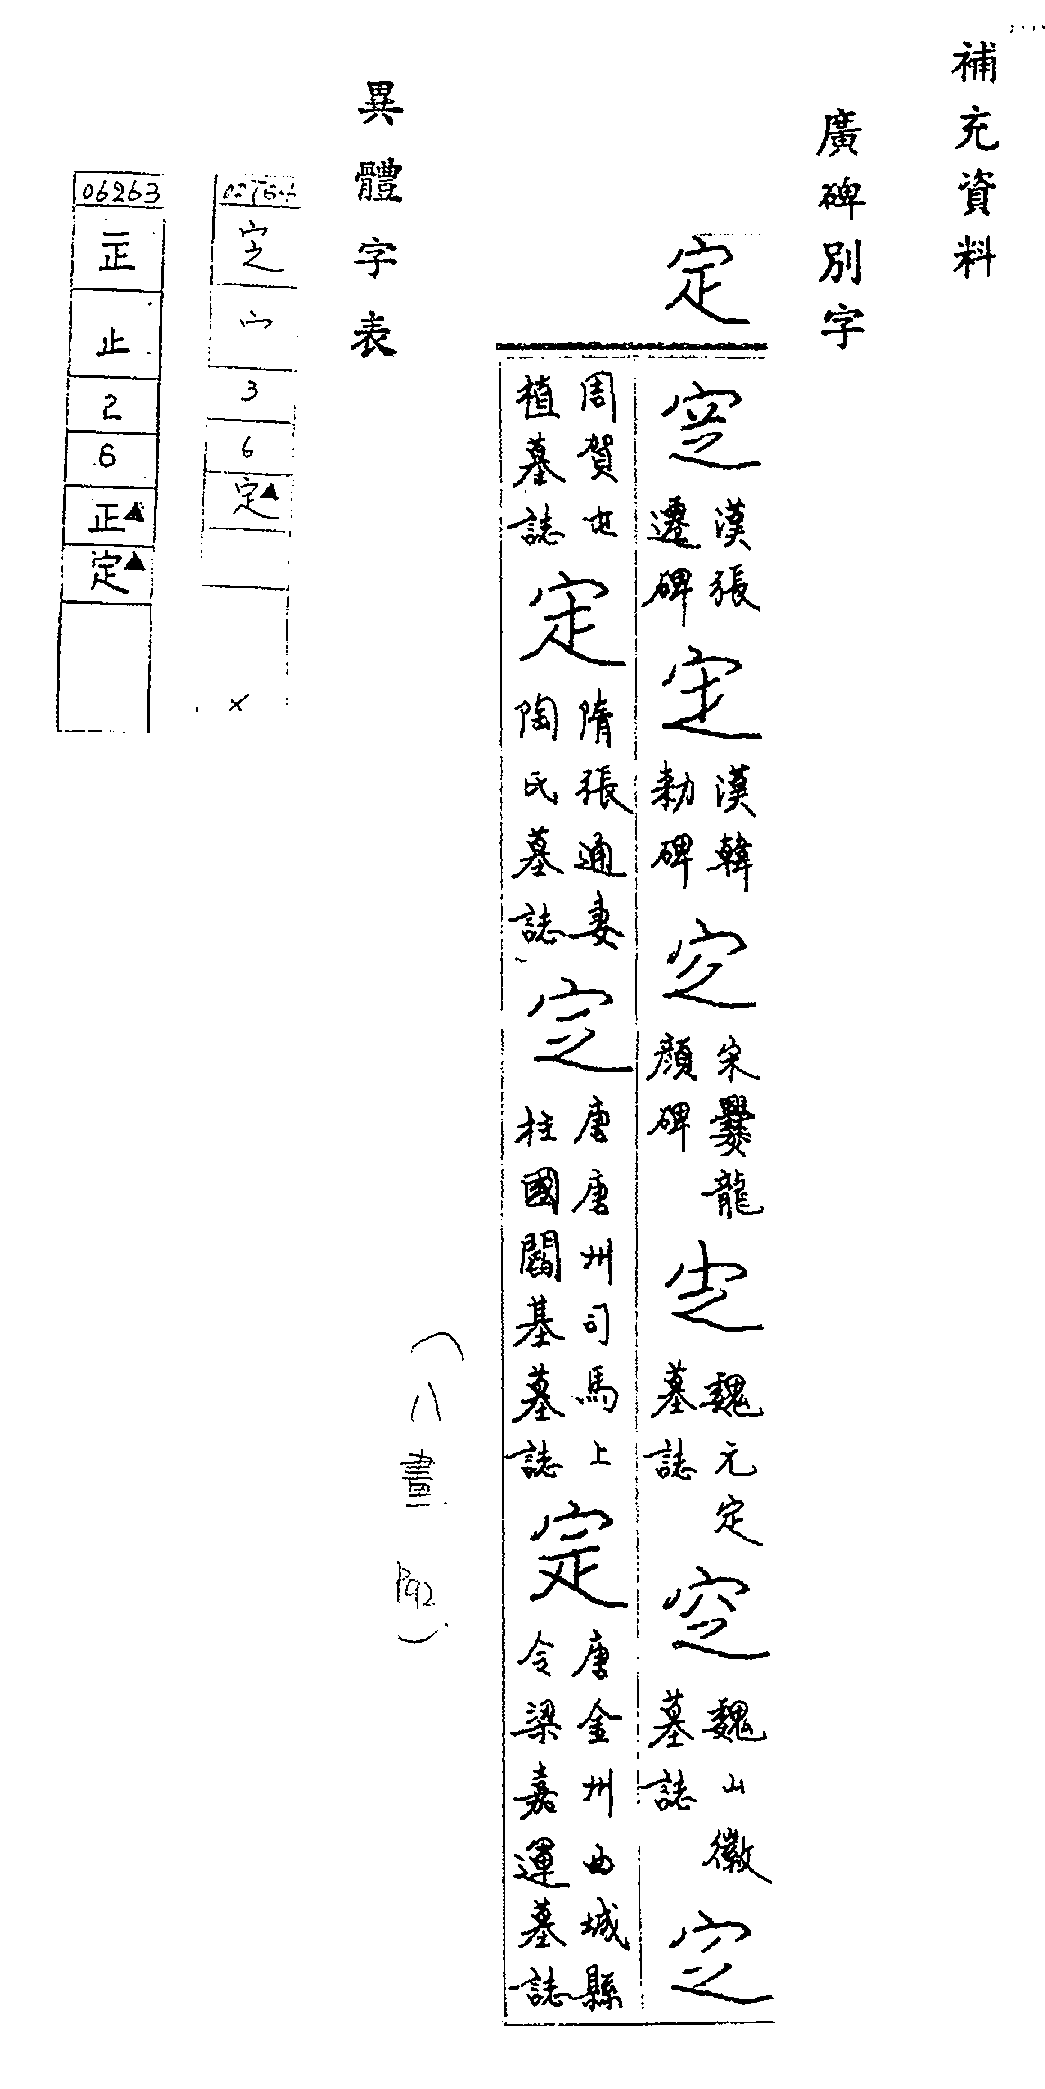 補充資料
廣碑別字
定
漢張遷碑
定
漢韓勑碑
㝎
宋爨龍顏碑
魏元定墓誌
魏山徽墓誌
㝎
周賀屯植墓誌
定
隋張通妻陶氏墓誌
㝎
唐唐州司馬上柱國閻基墓誌
唐金州曲城縣令梁嘉運墓誌
(八畫 P92)
異體字表
㝎
宀
3
6
定▲
×
06263
止
2
6
正▲
定▲